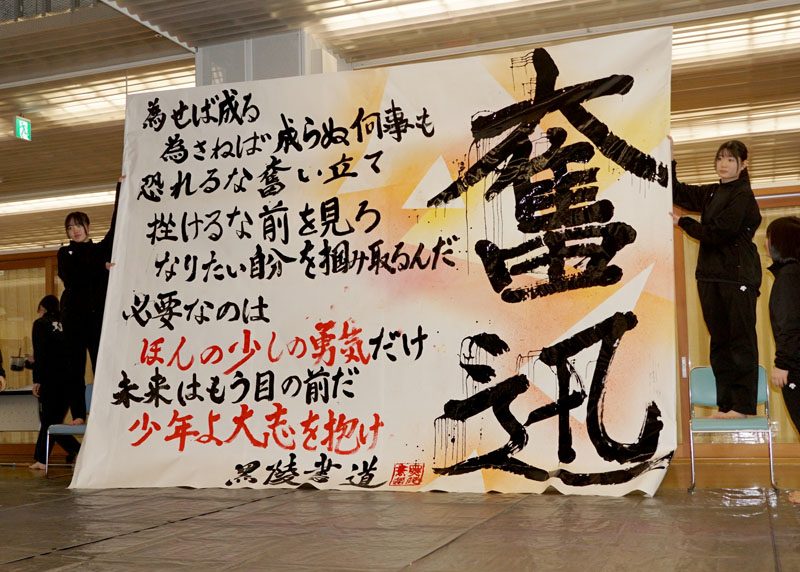 奮迅
為せば成る
為さねば成らぬ何事も
恐れるな奮い立て
挫けるな前を見ろ
なりたい自分を掴み取るんだ
必要なのは
ほんの少しの勇気だけ
未来はもう目の前だ
少年よ大志を抱け
黒陵書道